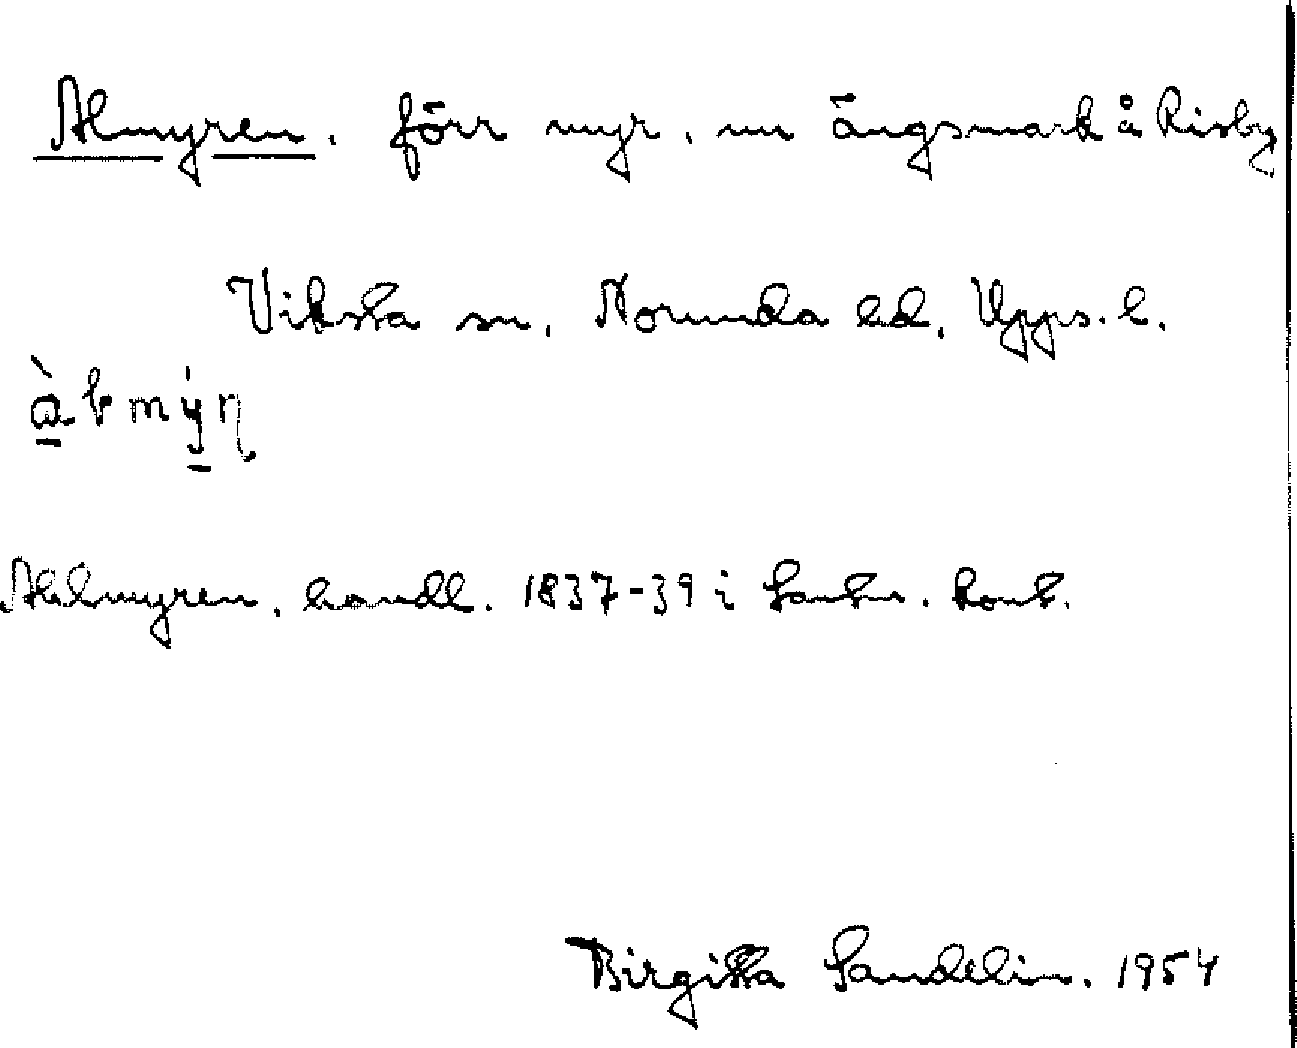 Almyren. förr myr, nu ängsmark å Risby
Viksta sn, Norunda hd, Upps. l.
Ahlmyren, handl. 1837-39 i Lantm. kont.
Birgitta Sandelin. 1954